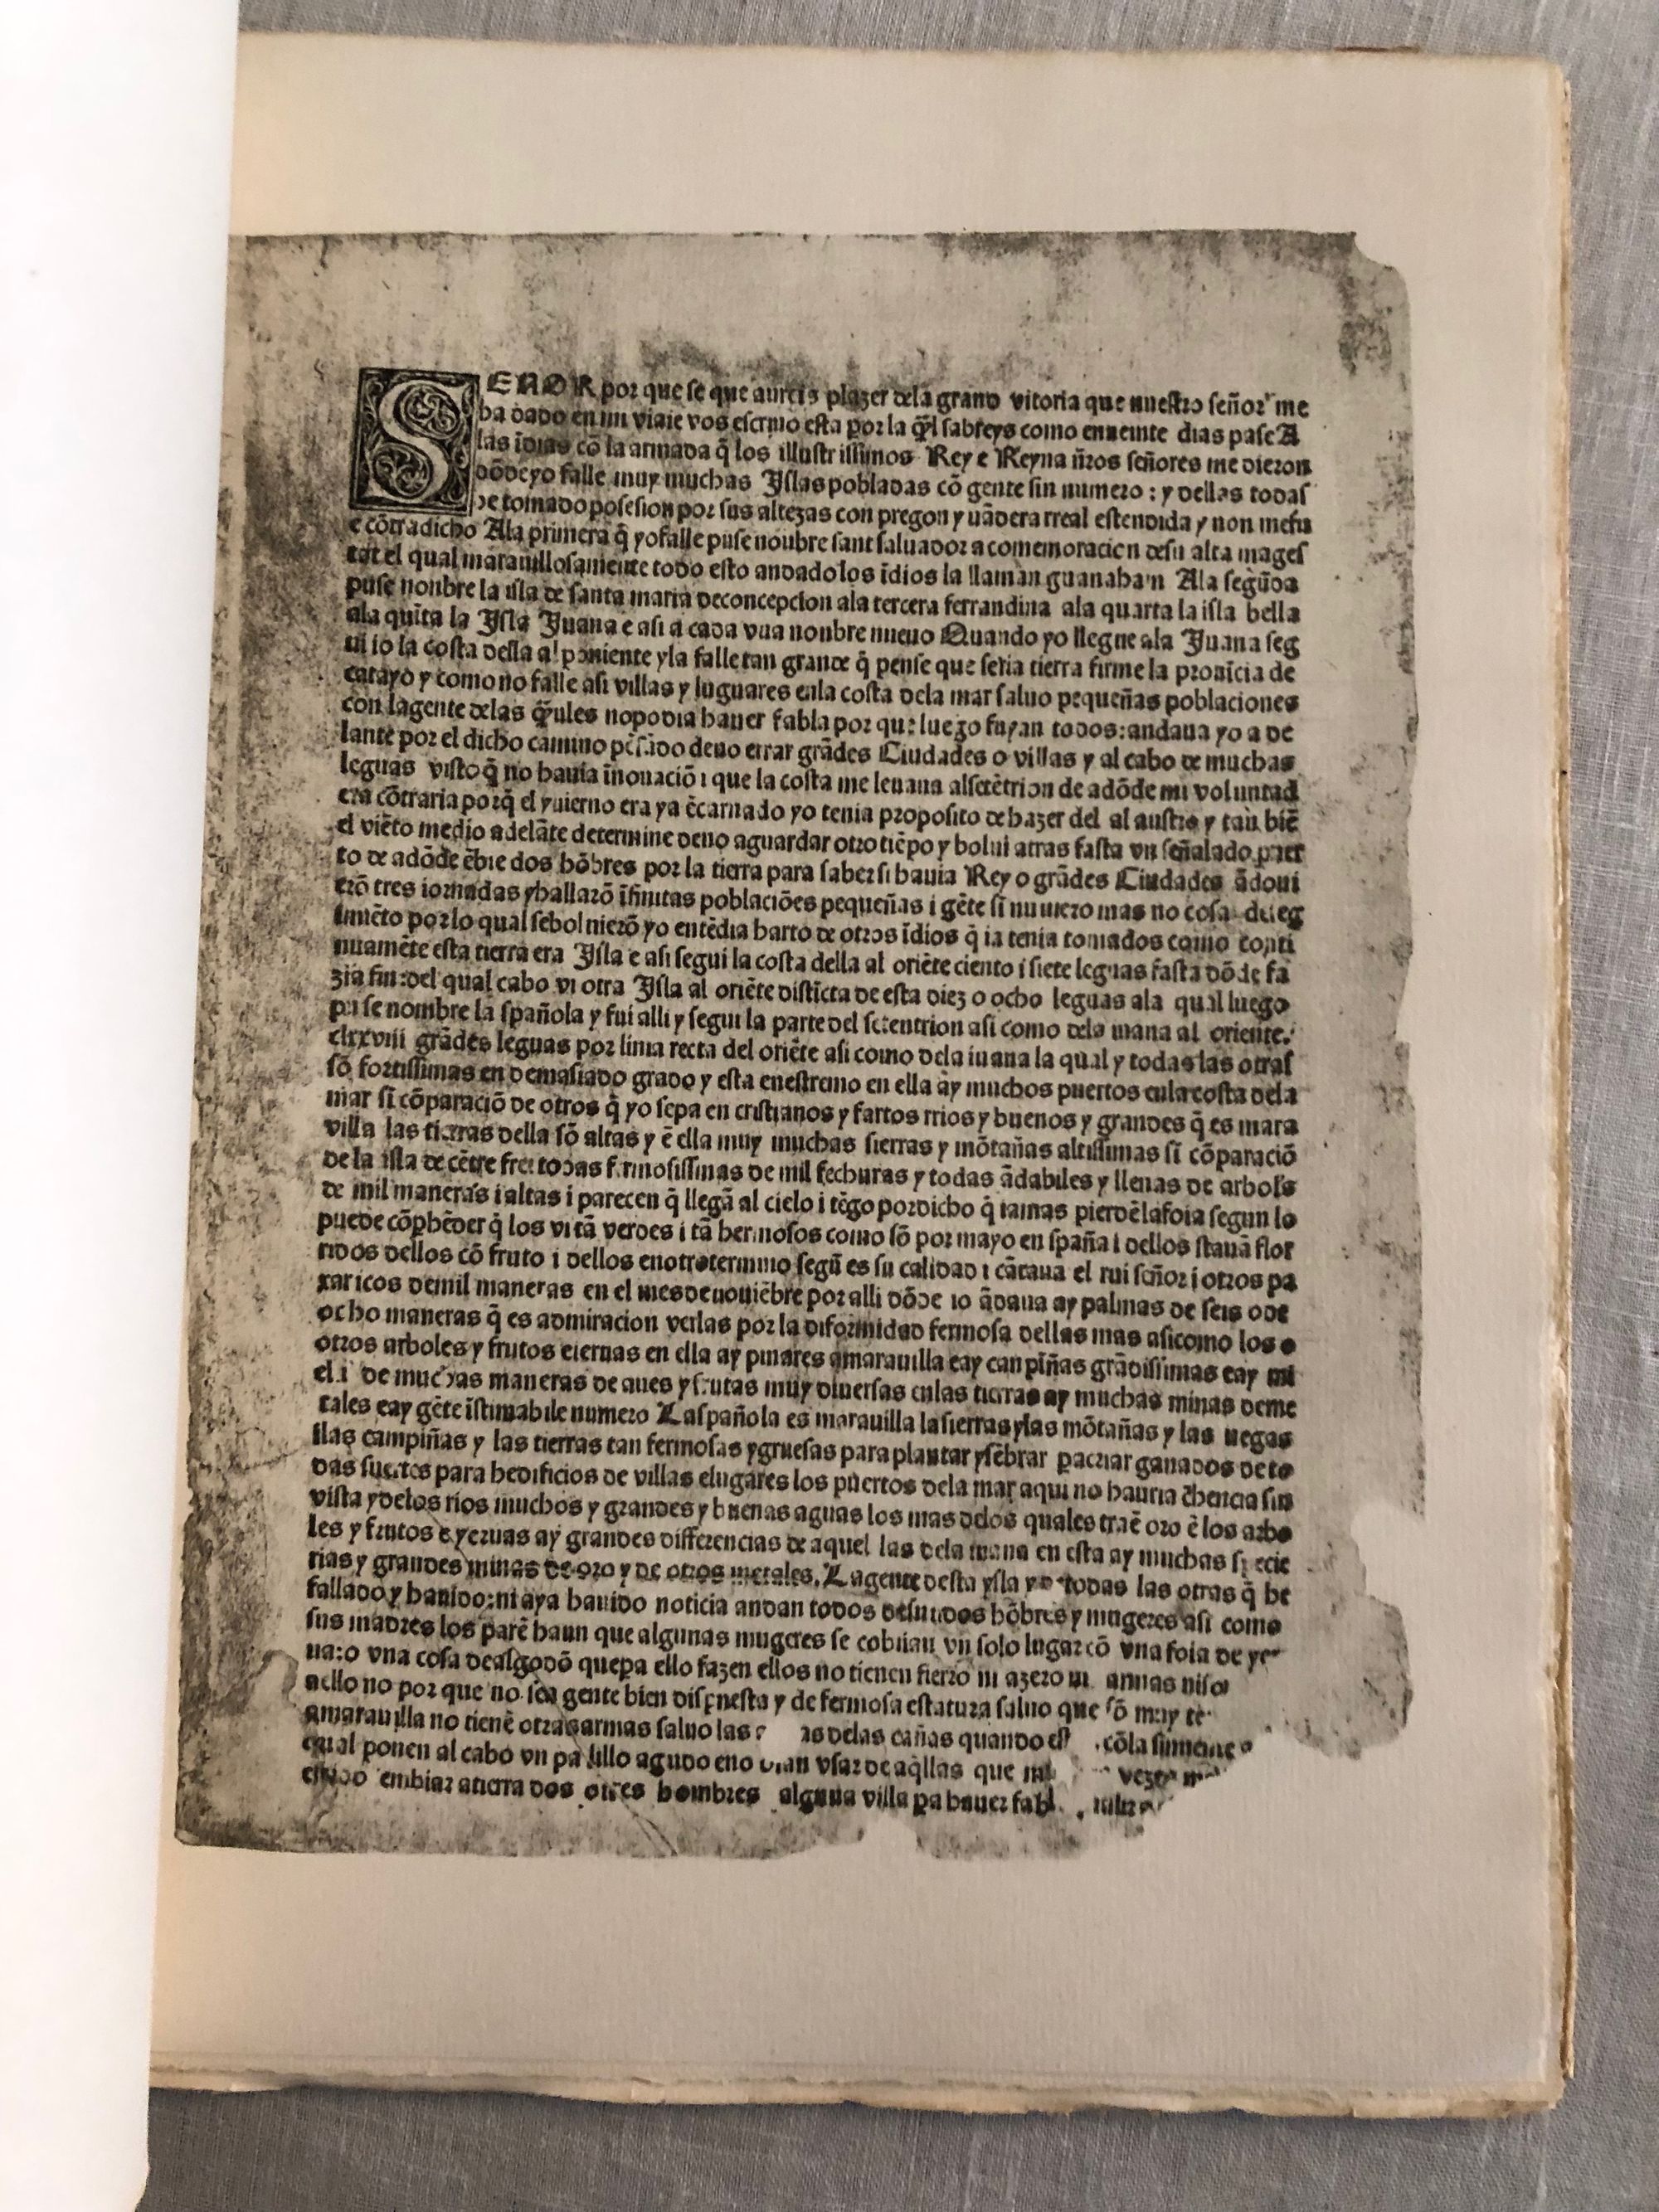 SEÑOR por que se que aureis plazer dela grand vitoria que nuestro señor me
ha dado en mi viaie vos escriuo esta por la q̃l sabreys como enueinte dias pase A
las īdias cō la armada q̄ los illustrissimos Rey e Reyna ñros señores me dieron
dōdeyo falle muy muchas Islas pobladas cō gente sin numero : y dellas todas
he tomado posesion por sus altezas con pregon y uādera rreal estendida y non mefu
e cōtradicho Ala primera q̄ yofalle puse nonbre sant saluador a comemoracion desu alta mages
tat el qual marauillosamente todo esto andado los īdios la llaman guanahan Ala segūda
puse nonbre la isla de santa maria deconcepcion ala tercera ferrandina ala quarta la isla bella
ala quīta la Isla Juana e asi a cada vna nonbre nueuo Quando yo llegue ala Juana seg
ui io la costa della al poniente yla falle tan grande q̄ pense que seria tierra firme la prouīcia de
catayo y como no falle asi villas y luguares enla costa dela mar saluo pequeñas poblaciones
con lagente delas q̃ules nopodia hauer fabla por que luego fuyan todos: andaua yo a de
lante por el dicho camino pēsādo deno errar grādes Ciudades o villas y al cabo de muchas
leguas visto q̄ no hauia īnouaciō i que la costa me leuaua alsetētrion de adōde mi voluntad
era cōtraria porq̄ el yuierno era ya ēcarnado yo tenia proposito de hazer del al austro y tan biē
el viēto medio adelāte determine deno aguardar otro tiēpo y bolui atras fasta vn señalado puer
to de adōde ēbie dos hōbres por la tierra para saber si hauia Rey o grādes Ciudades ādoui
erō tres iornadas yhallarō īfinitas poblaciōes pequeñas i gēte sī numero mas no cosa deleg
imiēto por lo qual sebolnierō yo entēdia harto de otros īdios q̄ ia tenia tomados como conti
nuamēte esta tierra era Isla e asi segui la costa della al oriēte ciento i siete leguas fasta dōde fa
zia fin: del qual cabo vi otra Isla al oriēte distīcta de esta diez o ocho leguas ala qual luego
puse nombre la spañola y fui alli y segui la parte del setentrion asi como dela iuana al oriente.
clxxviii grādes leguas por linia recta del oriēte asi como dela iuana la qual y todas las otras
sō fortissimas en demasiado grado y esta enestremo en ella ay muchos puertos enla costa dela
mar sī cōparaciō de otros q̄ yo sepa en cristianos y fartos rrios y buenos y grandes q̄ es mara
villa las tierras della sō altas y ē ella muy muchas sierras y mōtañas altissimas sī cōparaciō
de la isla de cētre fre todas fermosissimas de mil fechuras y todas ādabiles y llenas de arbols
de mil maneras i altas i parecen q̄ llegā al cielo i tēgo pordicho q̄ iamas pierdē lafoia segun lo
puede cōphēder q̄ los vi tā verdes i tā hermosos como sō por mayo en spaña i dellos stauā flor
ridos dellos cō fruto i dellos enotrotermino segū es su calidad i cātaua el rui señor i otros pa
xaricos demil maneras en el mes denouiēbre por alli dōde io ādaua ay palmas de seis ode
ocho maneras q̄ es admiracion verlas por la diformidad fermosa dellas mas asicomo los o
otros arboles y frutos eieruas en ella ay pinares amarauilla eay canpiñas grādissimas eay mi
el i de muchas maneras de aues y frutas muy diuersas enlas tierras ay muchas minas deme
tales eay gēte īstimabile numero Laspañola es marauilla lasierras ylas mōtañas y las uegas
ilas campiñas y las tierras tan fermosas ygruesas para plantar ysēbrar pacriar ganados de to
das suertes para hedificios de villas elugares los puertos dela mar aqui no hauria chencia sin
vista ydelos rios muchos y grandes y buenas aguas los mas delos quales traē oro ē los arbo
les y frutos e yeruas ay grandes differencias de aquel las dela iuana en esta ay muchas specie
rias y grandes minas de oro y de otros metales. Lagente desta ysla y de todas las otras q̄ he
fallado y hauido: ni aya hauido noticia andan todos desnudos hōbres y mugeres asi como
sus madres los parē haun que algunas mugeres se cobiian vn solo lugar cō vna foia de yer
ua: o vna cosa dealgodō quepa ello fazen ellos no tienen fierro ni azero ni armas niso
aello no por que no sea gente bien dispuesta y de fermosa estatura saluo que sō muy te
amarauilla no tienē otras armas saluo las as delas cañas quando est cōla simiente
equal ponen al cabo vn pa lillo agudo eno vsar de aq̄llas que vezes
embiar atierra dos otres hombres alguna villa pa hauer fabl